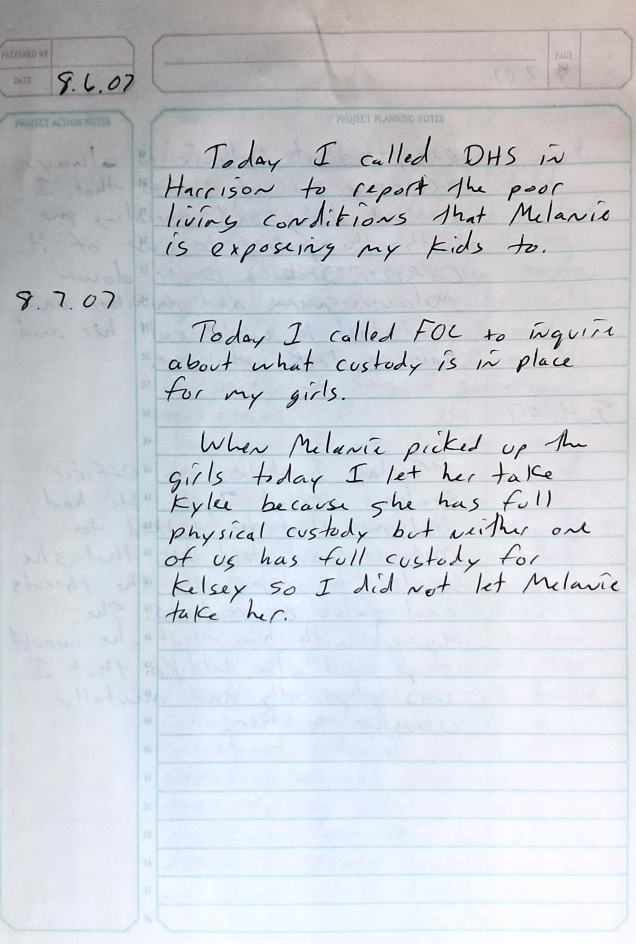 PREPARED BY
DATE 8.6.07
PAGE NO.
PROJECT ACTION NOTES
PROJECT PLANNING NOTES
Today I called DHS in
Harrison to report the poor
living conditions that Melanie
is exposeing my kids to.
8.7.07
Today I called FOC to inquire
about what custody is in place
for my girls.
When Melanie picked up the
girls today I let her take
Kylee because she has full
physical custody but neither one
of us has full custody for
Kelsey so I did not let Melanie
take her.